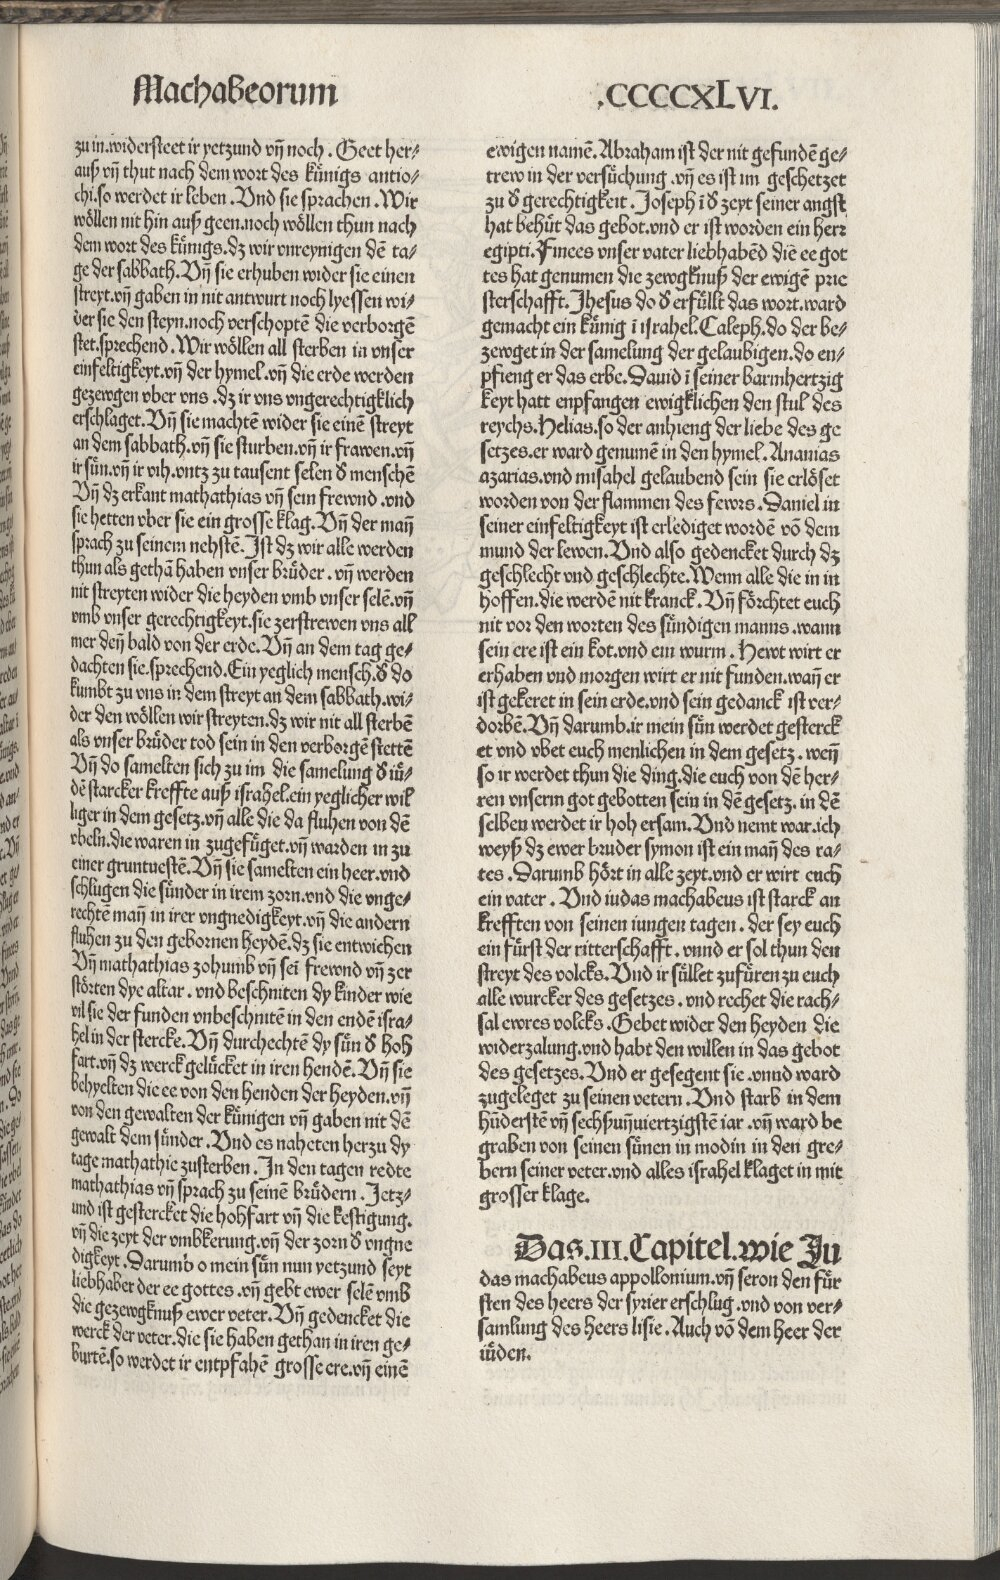 Machabeorum
.CCCCXLVI.
zu in.widersteet ir yetzund vñ noch. Geet her⸗
auß vñ thut nach dem wort des künigs antio⸗
chi.so werdet ir leben. Vnd sie sprachen. Wir
wöllen nit hin auß geen.noch wöllen thun nach
dem wort des künigs.dz wir vnreynigen dē ta⸗
ge der sabbath. Vñ sie erhuben wider sie einen
streyt.vñ gaben in nit antwurt noch lyessen wi⸗
der sie den steyn.noch verschoptē die verborgē
stet.sprechend. Wir wöllen all sterben in vnser
einfeltigkeyt.vñ der hymel.vñ die erde werden
gezewgen vber vns .dz ir vns vngerechtigklich
erschlaget. Vñ sie machtē wider sie einē streyt
an dem sabbath.vñ sie sturben.vñ ir frawen.vñ
ir sün.vñ ir vih.vntz zu tausent selen d̕ menschē
Vñ dz erkant mathathias vñ sein frewnd .vnd
sie hetten vber sie ein grosse klag. Vñ der mañ
sprach zu seinem nehstē. Ist dz wir alle werden
thun als gethā haben vnser brüder. vñ werden
nit streyten wider die heyden vmb vnser selē.vñ
vmb vnser gerechtigkeyt.sie zerstrewen vns all
mer deñ bald von der erde. Vñ an dem tag ge⸗
dachten sie.sprechend. Ein yeglich mensch.d̕ do
kumbt zu vns in dem streyt an dem sabbath.wi⸗
der den wöllen wir streyten.dz wir nit all sterbē
als vnser brüder tod sein in den verborgē stettē
Vñ do samelten sich zu im die samelung d̕ iü⸗
dē starcker kreffte auß israhel.ein yeglicher wil
liger in dem gesetz.vñ alle die da fluhen von dē
vbeln.die waren in zugefüget.vñ warden in zu
einer gruntuestē. Vñ sie samelten ein heer.vnd
schlugen die sünder in irem zorn.vnd die vnge⸗
rechtē mañ in irer vngnedigkeyt.vñ die andern
fluhen zu den gebornen heydē.dz sie entwichen
Vñ mathathias zohumb vñ sei frewnd vñ zer
störten dye altar. vnd beschniten dy kinder wie
vil sie der funden vnbeschnitē in den endē isra⸗
hel in der stercke. Vñ durchechtē dy sün d̕ hoh
fart.vñ dz werck gelücket in iren hendē. Vñ sie
behyelten die ee von den henden der heyden.vñ
von den gewalten der künigen vñ gaben nit dē
gewalt dem sünder. Vnd es naheten herzu dy
tage mathathie zusterben. In den tagen redte
mathathias vñ sprach zu seinē brüdern. Jetz⸗
und ist gestercket die hohfart vñ die kestigung.
vñ die zeyt der vmbkerung.vñ der zorn d̕ vngne
digkeyt. Darumb o mein sün nun yetzund seyt
liebhaber der ee gottes .vñ gebt ewer selē vmb
die gezewgknuß ewer veter. Vñ gedencket die
werck der veter.die sie haben gethan in iren ge⸗
burtē.so werdet ir entpfahē grosse ere.vñ einē
ewigen namē. Abraham ist der nit gefundē ge⸗
trew in der versüchung .vñ es ist im geschetzet
zu d̕ gerechtigkeit. Joseph ī d̕ zeyt seiner angst
hat behüt das gebot.vnd er ist worden ein herr
egipti. Finees vnser vater liebhabēd die ee got
tes hat genumen die zewgknuß der ewigē prie
sterschafft. Jhesus do d̕ erfüllt das wort.ward
gemacht ein künig ī israhel. Caleph.do der be⸗
zewget in der samelung der gelaubigen.do en⸗
pfieng er das erbe. Dauid ī seiner barmhertzig
keyt hatt enpfangen ewigklichen den stul des
reychs. Helias.so der anhieng der liebe des ge
setzes.er ward genumē in den hymel. Ananias
azarias.vnd misahel gelaubend sein sie erlöset
worden von der flammen des fewrs. Daniel in
seiner einfeltigkeyt ist erlediget wordē vō dem
mund der lewen. Vnd also gedencket durch dz
geschlecht vnd geschlechte. Wenn alle die in in
hoffen.die werdē nit kranck. Vñ förchtet euch
nit vor den worten des sündigen manns .wann
sein ere ist ein kot.vnd ein wurm. Hewt wirt er
erhaben vnd morgen wirt er nit funden.wañ er
ist gekeret in sein erde.vnd sein gedanck ist ver⸗
dorbē. Vñ darumb.ir mein sün werdet gesterck
et vnd vbet euch menlichen in dem gesetz. weñ
so ir werdet thun die ding.die euch von dē her⸗
ren vnserm got gebotten sein in dē gesetz.in dē
selben werdet ir hoh ersam. Vnd nemt war.ich
weyß dz ewer bruder symon ist ein mañ des ra⸗
tes. Darumb hört in alle zeyt.vnd er wirt euch
ein vater. Vnd iudas machabeus ist starck an
krefften von seinen iungen tagen. der sey euch
ein fürst der ritterschafft. vnnd er sol thun den
streyt des volcks. Vnd ir süllet zufüren zu euch
alle wurcker des gesetzes. vnd rechet die rach⸗
sal ewres volcks. Gebet wider den heyden die
widerzalung.vnd habt den willen in das gebot
des gesetzes. Vnd er gesegent sie .vnnd ward
zugeleget zu seinen vetern. Vnd starb in dem
hūderstē vñ sechßvñviertzigstē iar .vñ ward be
graben von seinen sünen in modin in den gre⸗
bern seiner veter.vnd alles israhel klaget in mit
grosser klage.
Das.III.Capitel.wie Ju
das machabeus appollonium.vñ seron den für
sten des heers der syrier erschlug.vnd von ver⸗
samlung des heers lisie. Auch vō dem heer der
iüden.